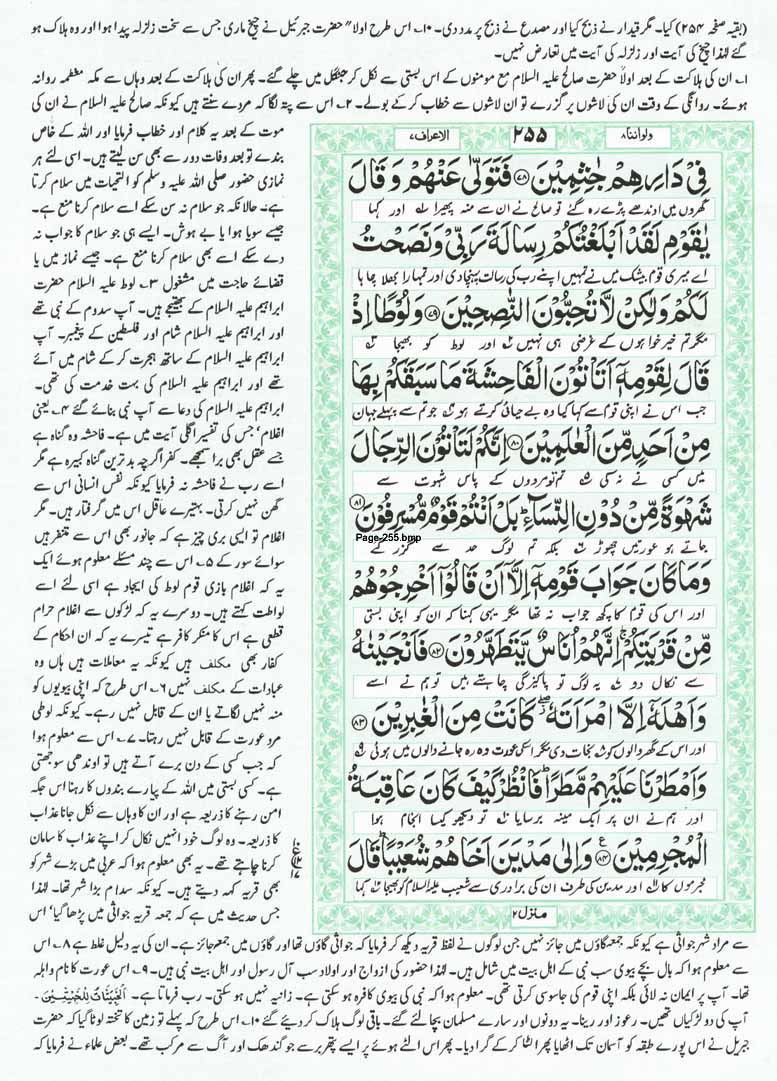 (بقیہ صفحہ ۲۵۴) کیا۔ مگر قیدار نے ذبح کیا اور مصدع نے ذبح پر مدد دی۔ ۱۰۔ اس طرح اولاً حضرت جبرئیل نے چیخ ماری جس سے سخت زلزلہ پیدا ہوا اور وہ ہلاک ہو
گئے لہٰذا چیخ کی آیت اور زلزلہ کی آیت میں تعارض نہیں۔
۱۔ ان کی ہلاکت کے بعد اولاً حضرت صالح علیہ السلام مع مومنوں کے اس بستی سے نکل کر جنگل میں چلے گئے۔ پھر ان کی ہلاکت کے بعد وہاں سے مکہ معظمہ روانہ
ہوئے۔ روانگی کے وقت ان کی لاشوں پر گزرے تو ان لاشوں سے خطاب کر کے بولے۔ ۲۔ اس سے پتہ لگا کہ مردے سنتے ہیں کیونکہ صالح علیہ السلام نے ان کی
ولواننا۸
۲۵۵
الاعراف۷
فِیْ دَارِهِمْ جٰثِمِیْنَ ﴿۷۸﴾ فَتَوَلّٰی عَنْهُمْ وَ قَالَ
گھروں میں اوندھے پڑے رہ گئے تو صالح نے ان سے منہ پھیرا اور کہا
یٰقَوْمِ لَقَدْ اَبْلَغْتُكُمْ رِسَالَةَ رَبِّیْ وَ نَصَحْتُ
اے میری قوم بیشک میں نے تمہیں اپنے رب کی رسالت پہنچا دی اور تمہارا بھلا چاہا
لَكُمْ وَ لٰكِنْ لَّا تُحِبُّوْنَ النّٰصِحِیْنَ ﴿۷۹﴾ وَ لُوْطًا اِذْ
مگر تم خیر خواہوں کے غرضی ہی نہیں اور لوط کو بھیجا
قَالَ لِقَوْمِهٖۤ اَتَاْتُوْنَ الْفَاحِشَةَ مَا سَبَقَكُمْ بِهَا
جب اس نے اپنی قوم سے کہا کیا وہ بے حیائی کرتے ہو جو تم سے پہلے جہان
مِنْ اَحَدٍ مِّنَ الْعٰلَمِیْنَ ﴿۸۰﴾ اِنَّكُمْ لَتَاْتُوْنَ الرِّجَالَ
میں کسی نے نہ کی تم تو مردوں کے پاس شہوت سے
شَهْوَةً مِّنْ دُوْنِ النِّسَآءِ بَلْ اَنْتُمْ قَوْمٌ مُّسْرِفُوْنَ ﴿۸۱﴾
Page-255.bmp
جاتے ہو عورتیں چھوڑ بلکہ تم لوگ حد سے گزر گئے
وَ مَا كَانَ جَوَابَ قَوْمِهٖۤ اِلَّاۤ اَنْ قَالُوْۤا اَخْرِجُوْهُمْ
اور اس کی قوم کا کچھ جواب نہ تھا مگر یہی کہنا کہ ان کو اپنی بستی
مِّنْ قَرْیَتِكُمْ اِنَّهُمْ اُنَاسٌ یَّتَطَهَّرُوْنَ ﴿۸۲﴾ فَاَنْجَیْنٰهُ
سے نکال دو یہ لوگ تو پاکیزگی چاہتے ہیں تو ہم نے اسے
وَ اَهْلَهٗۤ اِلَّا امْرَاَتَهٗ كَانَتْ مِنَ الْغٰبِرِیْنَ ﴿۸۳﴾
اور اس کے گھر والوں کو نجات دی مگر اسکی عورت وہ رہ جانے والوں میں ہوئی
وَ اَمْطَرْنَا عَلَیْهِمْ مَّطَرًا فَانْظُرْ كَیْفَ كَانَ عَاقِبَةُ
اور ہم نے ان پر ایک مینہ برسایا تو دیکھو کیسا انجام ہوا
الْمُجْرِمِیْنَ ﴿۸۴﴾ وَ اِلٰی مَدْیَنَ اَخَاهُمْ شُعَیْبًا قَالَ
مجرموں کا اور مدین کی طرف ان کی برادری سے شعیب علیہ السلام کو بھیجا کہا
منزل۲
موت کے بعد یہ کلام اور خطاب فرمایا اور اللہ کے خاص
بندے تو بعد وفات دور سے بھی سن لیتے ہیں۔ اسی لئے ہر
نمازی حضور صلی اللہ علیہ وسلم کو التحیات میں سلام کرتا
ہے۔ حالانکہ جو سلام نہ سن سکے اسے سلام کرنا منع ہے۔
جیسے سویا ہوا یا بے ہوش۔ ایسے ہی جو سلام کا جواب نہ
دے سکے اسے بھی سلام کرنا منع ہے۔ جیسے نماز میں یا
قضائے حاجت میں مشغول ۳۔ لوط علیہ السلام حضرت
ابراہیم علیہ السلام کے بھتیجے ہیں۔ آپ سدوم کے نبی تھے
اور ابراہیم علیہ السلام شام اور فلسطین کے پیغمبر۔ آپ
ابراہیم علیہ السلام کے ساتھ ہجرت کر کے شام میں آئے
تھے اور ابراہیم علیہ السلام کی بہت خدمت کی تھی۔
ابراہیم علیہ السلام کی دعا سے آپ نبی بنائے گئے ۴۔ یعنی
اغلام، جس کی تفسیر اگلی آیت میں ہے۔ فاحشہ وہ گناہ ہے
جسے عقل بھی برا سمجھے۔ کفر اگرچہ بدترین گناہ کبیرہ ہے مگر
اسے رب نے فاحشہ نہ فرمایا کیونکہ نفس انسانی اس سے
گھن نہیں کرتی۔ بہتیرے عاقل اس میں گرفتار ہیں۔ مگر
اغلام تو ایسی بری چیز ہے کہ جانور بھی اس سے متنفر ہیں
سوائے سور کے ۵۔ اس سے چند مسئلے معلوم ہوئے ایک
یہ کہ اغلام بازی قوم لوط کی ایجاد ہے اسی لئے اسے
لواطت کہتے ہیں۔ دوسرے یہ کہ لڑکوں سے اغلام حرام
قطعی ہے اس کا منکر کافر ہے تیسرے یہ کہ ان احکام کے
کفار بھی مکلف ہیں کیونکہ یہ معاملات ہیں ہاں وہ
عبادات کے مکلف نہیں ۶۔ اس طرح کہ اپنی بیویوں کو
منہ نہیں لگاتے یا ان کے قابل نہیں رہے۔ کیونکہ لوطی
مرد عورت کے قابل نہیں رہتا۔ ۷۔ اس سے معلوم ہوا
کہ جب کسی کے دن برے آتے ہیں تو اوندھی سوجھتی
ہے۔ کسی بستی میں اللہ کے پیارے بندوں کا رہنا اس جگہ
امن رہنے کا ذریعہ ہے اور ان کا وہاں سے نکل جانا عذاب
کا ذریعہ۔ وہ لوگ خود انہیں نکال کر اپنے عذاب کا سامان
کرنا چاہتے تھے۔ یہ بھی معلوم ہوا کہ عربی میں بڑے شہر کو
بھی قریہ کہہ دیتے ہیں۔ کیونکہ سدام بڑا شہر تھا۔ لہٰذا
جس حدیث میں ہے کہ جمعہ قریہ جواثی میں پڑھا گیا، اس
سے مراد شہر جواثی ہے کیونکہ جمعہ گاؤں میں جائز نہیں جن لوگوں نے لفظ قریہ دیکھ کر فرمایا کہ جواثی گاؤں تھا اور گاؤں میں جمعہ جائز ہے۔ ان کی یہ دلیل غلط ہے ۸۔ اس
سے معلوم ہوا کہ بال بچے بیوی سب نبی کے اہل بیت میں شامل ہیں۔ لہٰذا حضور کی ازواج اور اولاد سب آل رسول اور اہل بیت نبی ہیں۔ ۹۔ اس عورت کا نام واہلہ
تھا۔ آپ پر ایمان نہ لائی بلکہ اپنی قوم کی جاسوسی کرتی تھی۔ معلوم ہوا کہ نبی کی بیوی کافرہ ہو سکتی ہے۔ زانیہ نہیں ہو سکتی۔ رب فرماتا ہے۔ اَلْخَبِیْثٰتُ لِلْخَبِیْثِیْنَ۔
آپ کی دو لڑکیاں تھیں۔ رعوز اور رینا۔ یہ دونوں اور سارے مسلمان بچا لئے گئے۔ باقی لوگ ہلاک کر دیئے گئے ۱۰۔ اس طرح کہ پہلے تو زمین کا تختہ لوٹا گیا کہ حضرت
جبریل نے اس پورے طبقہ کو آسمان تک اٹھایا پھر الٹا کر کے گرا دیا۔ پھر اس الٹے ہوئے پر ایسے پتھر برسے جو گندھک اور آگ سے مرکب تھے۔ بعض علماء نے فرمایا کہ